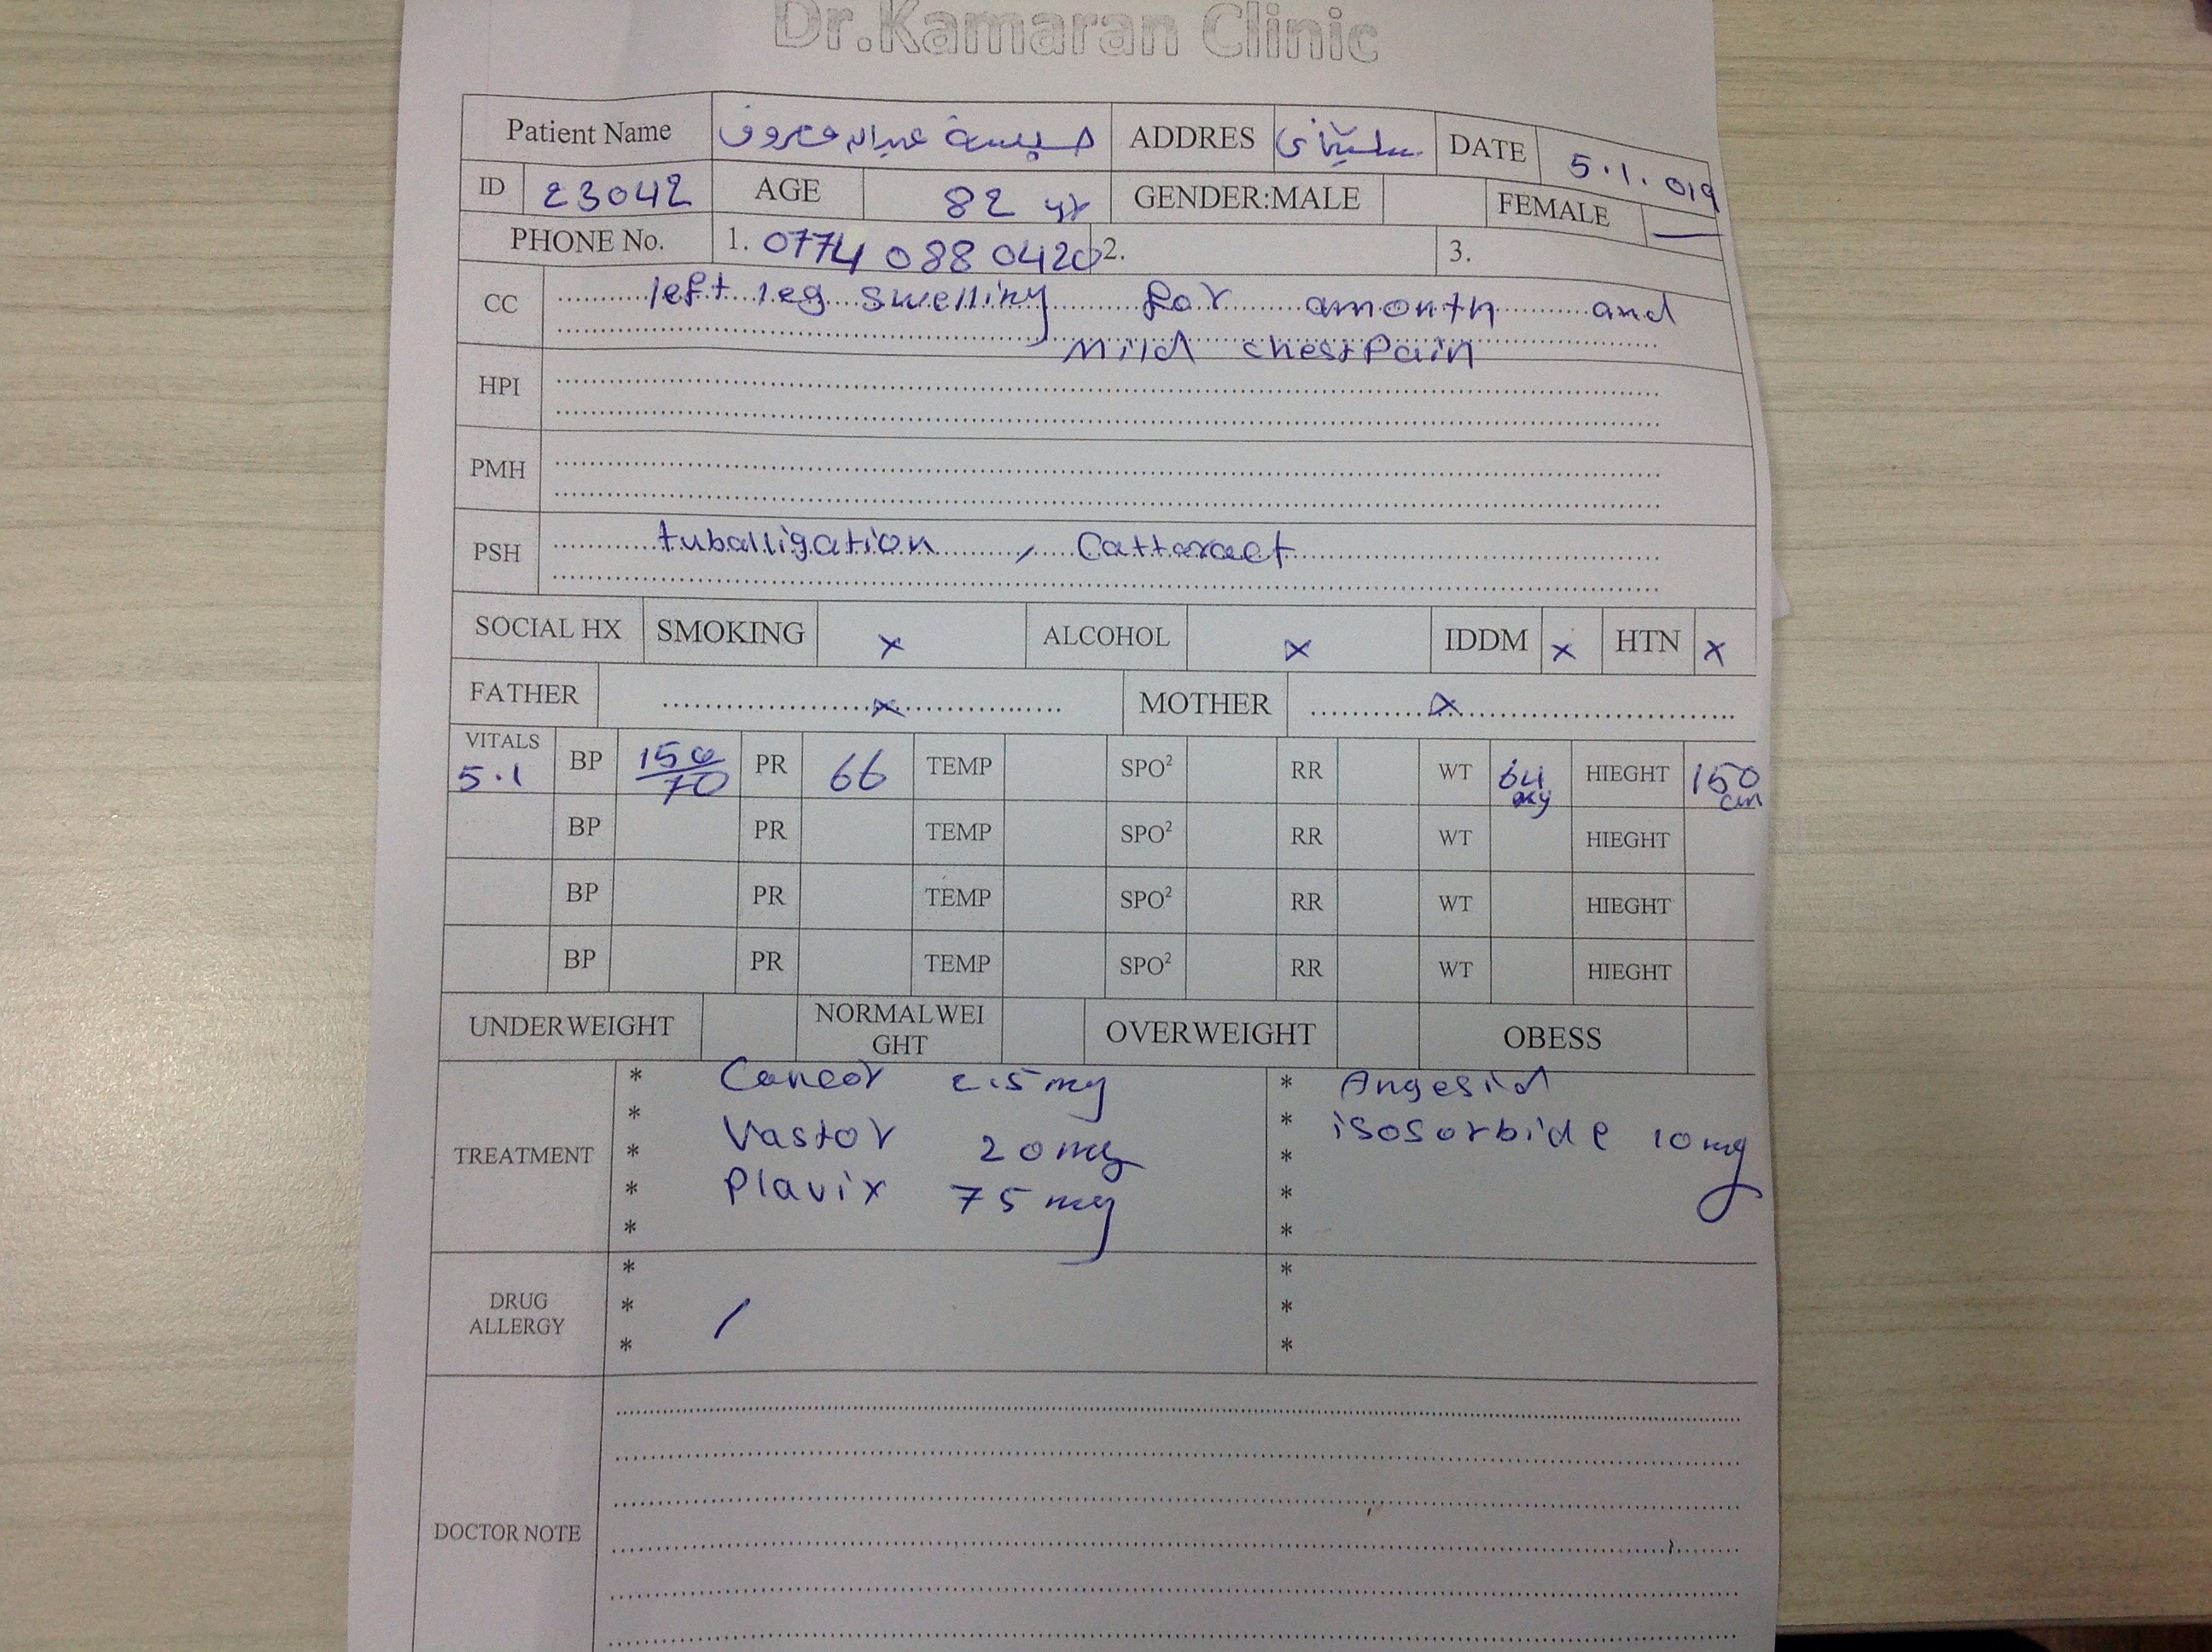 Dr.Kamaran Clinic
Patient Name حبیسة عبداله معروف ADDRES سلێمانی DATE 5.1.019
ID 23042 AGE 82 yr GENDER:MALE FEMALE
PHONE No. 1. 0774 088 0420 2. 3.
CC left leg swelling for amonth and
mild chest Pain
HPI
PMH
PSH tuballigation , Cattaract
SOCIAL HX SMOKING x ALCOHOL x IDDM x HTN x
FATHER x MOTHER x
VITALS 5.1 BP 150/70 PR 66 TEMP SPO² RR WT 64 kg HIEGHT 150 cm
BP PR TEMP SPO² RR WT HIEGHT
BP PR TEMP SPO² RR WT HIEGHT
BP PR TEMP SPO² RR WT HIEGHT
UNDERWEIGHT NORMALWEI
GHT OVERWEIGHT OBESS
TREATMENT
* Concor 2.5 mg * Angesid
* Vastor 20 mg * isosorbide 10 mg
* Plavix 75 mg *
* *
* *
DRUG
ALLERGY
* *
* / *
* *
DOCTOR NOTE